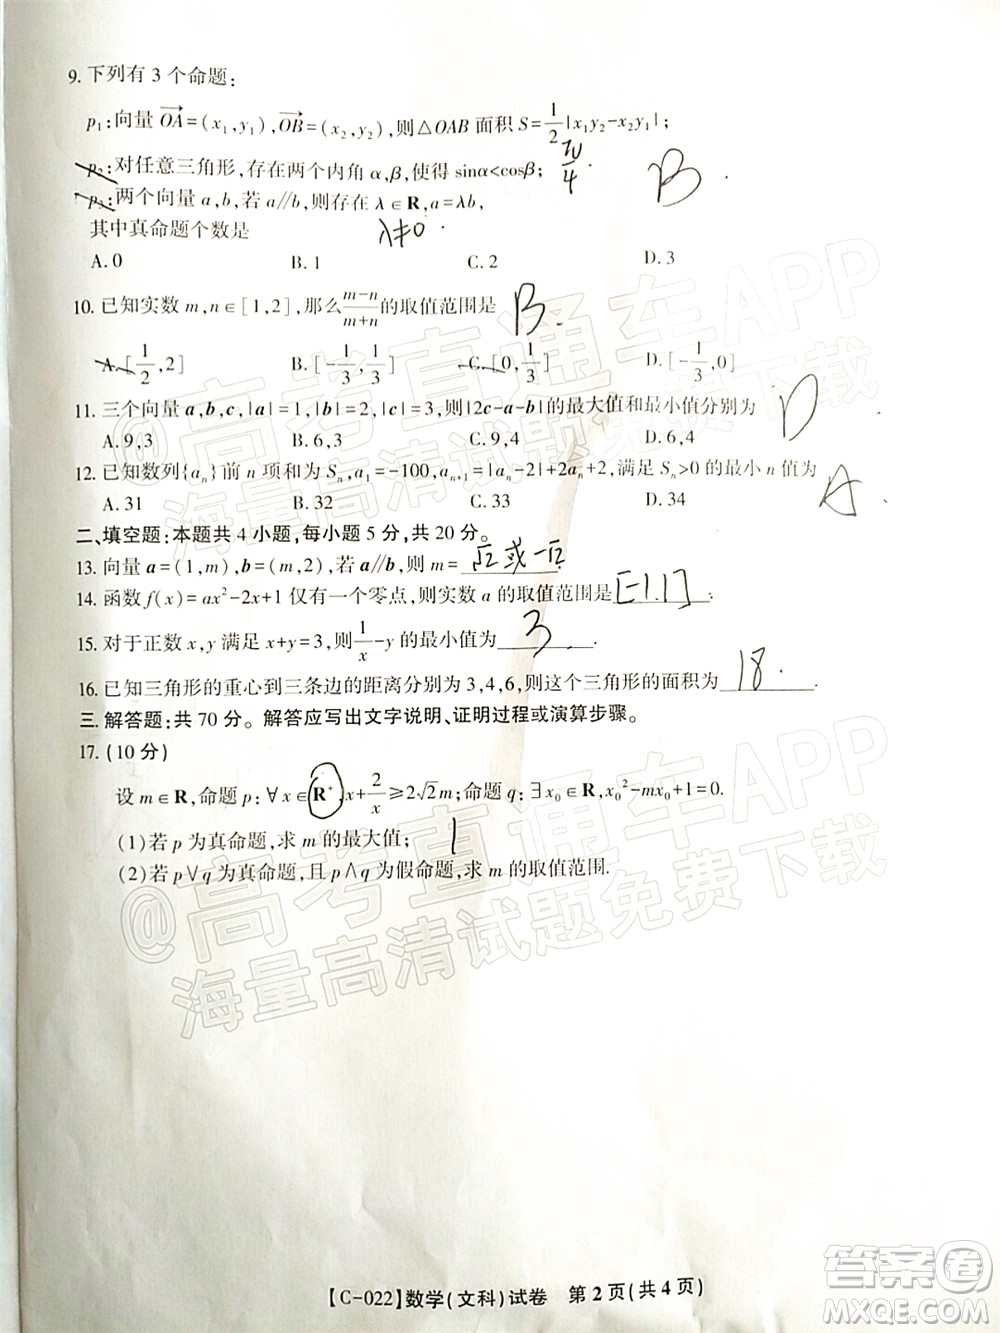 9. 下列有 3 个命题:
p₁:向量 OA→=(x₁,y₁),OB→=(x₂,y₂),则△OAB 面积 S=1/2|x₁y₂-x₂y₁|;
p₂:对任意三角形,存在两个内角 α,β,使得 sinα<cosβ; π/4
B
p₃:两个向量 a,b,若 a//b,则存在 λ∈R,a=λb,
其中真命题个数是 λ≠0
A. 0 B. 1 C. 2 D. 3
10. 已知实数 m,n∈[1,2],那么(m-n)/(m+n)的取值范围是 B.
A. [1/2,2] B. [-1/3,1/3] C. [0,1/3] D. [-1/3,0]
11. 三个向量 a,b,c,|a|=1,|b|=2,|c|=3,则|2c-a-b|的最大值和最小值分别为 D
A. 9,3 B. 6,3 C. 9,4 D. 6,4
12. 已知数列{aₙ}前 n 项和为 Sₙ,a₁=-100,aₙ₊₁=|aₙ-2|+2aₙ+2,满足 Sₙ>0 的最小 n 值为 A.
A. 31 B. 32 C. 33 D. 34
二、填空题:本题共 4 小题,每小题 5 分,共 20 分。
13. 向量 a=(1,m),b=(m,2),若 a//b,则 m= √2或-√2.
14. 函数 f(x)=ax²-2x+1 仅有一个零点,则实数 a 的取值范围是[-1.1].
15. 对于正数 x,y 满足 x+y=3,则1/x-y 的最小值为 3.
16. 已知三角形的重心到三条边的距离分别为 3,4,6,则这个三角形的面积为 18.
三. 解答题:共 70 分。解答应写出文字说明、证明过程或演算步骤。
17. (10 分)
设 m∈R,命题 p:∀x∈R⁺,x+2/x≥2√2m;命题 q:∃x₀∈R,x₀²-mx₀+1=0.
(1)若 p 为真命题,求 m 的最大值; 1
(2)若 p∨q 为真命题,且 p∧q 为假命题,求 m 的取值范围.
@高考直通车APP
海量高清试题免费下载
@高考直通车APP
海量高清试题免费下载
【C-022】数学(文科)试卷 第 2 页(共 4 页)
答案圈
MXQE.COM